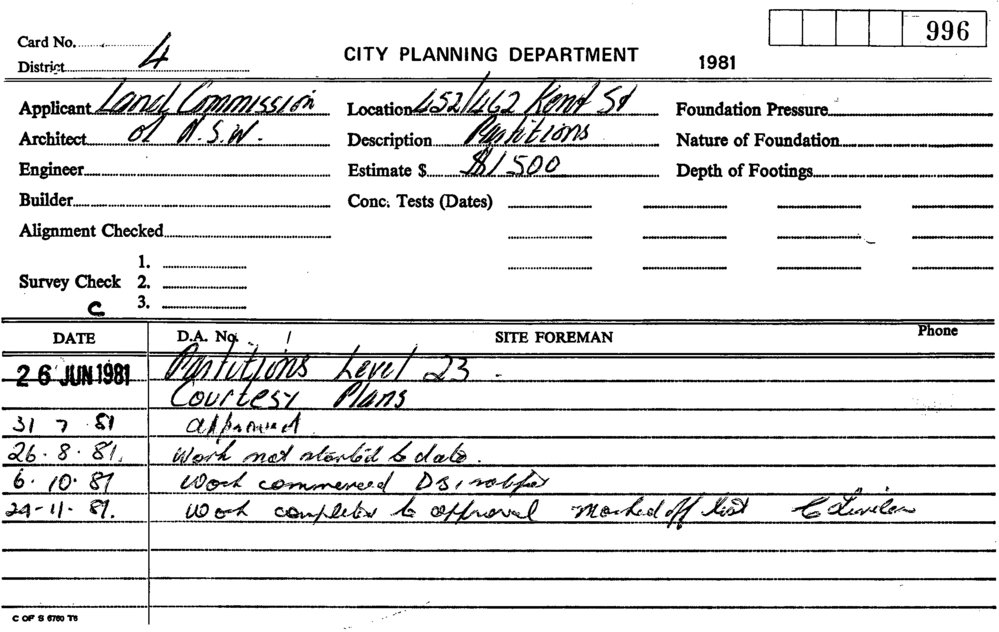 996
Card No.
District 4
CITY PLANNING DEPARTMENT 1981
Applicant Land Commission Location 452/462 Kent St Foundation Pressure
Architect of N.S.W. Description Partitions Nature of Foundation
Engineer Estimate $ $1500 Depth of Footings
Builder Conc. Tests (Dates)
Alignment Checked
1.
Survey Check 2.
C 3.
DATE D.A. No. SITE FOREMAN Phone
26 JUN 1981 Partitions Level 23.
Courtesy Plans
31 7 81 approved
26.8.81. Work not started to date.
6.10.81 Work commenced
24-11-81. Work completed to approval Marked off list
C OF S 6760 T6